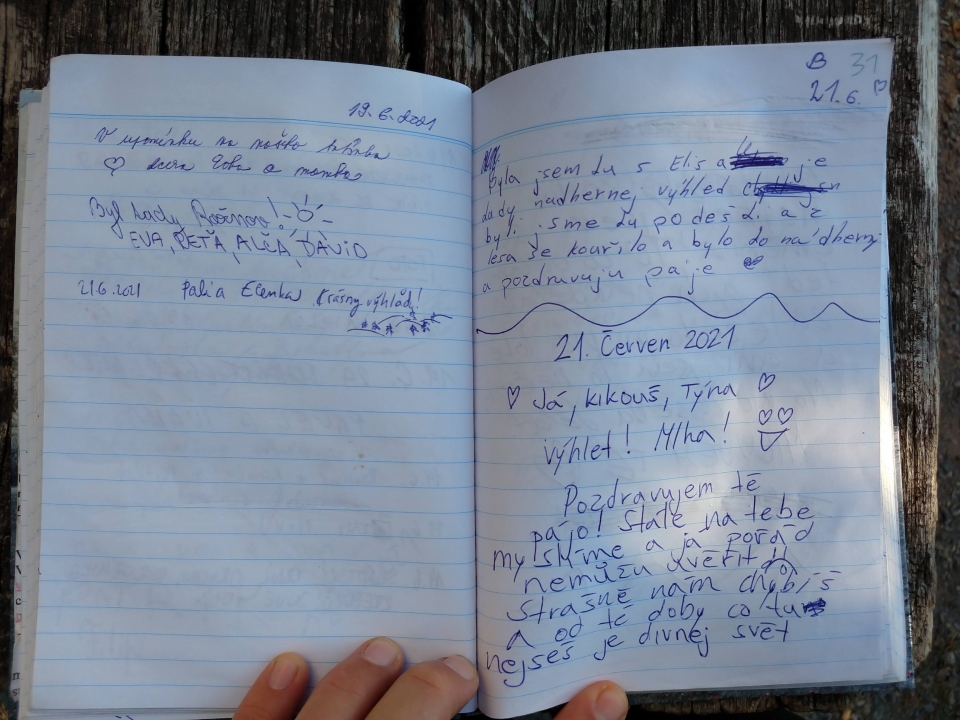 19.6.2021
V upomínku na našeho
dcera Eva a mamka
Byl tady Božnov!
EVA, PEŤA, ALČA, DAVID
21.6.2021 Palí a Elenka Krásny výhľad!
B 31
21.6.
Byla jsem tu s Elis a je
tady nadhernej vyhled
byli sme tu po dešti a z
lesa se kouřilo a bylo to nádherný
a pozdravuju paje
21. Červen 2021
Já, kikouš, Týna
výhlet! Mlha!
Pozdravujem tě
pájo! Stále na tebe
myslíme a já pořád
nemůžu uvěřit!!
Strašně nám chybíš
a od té doby co tu
nejseš je divnej svět